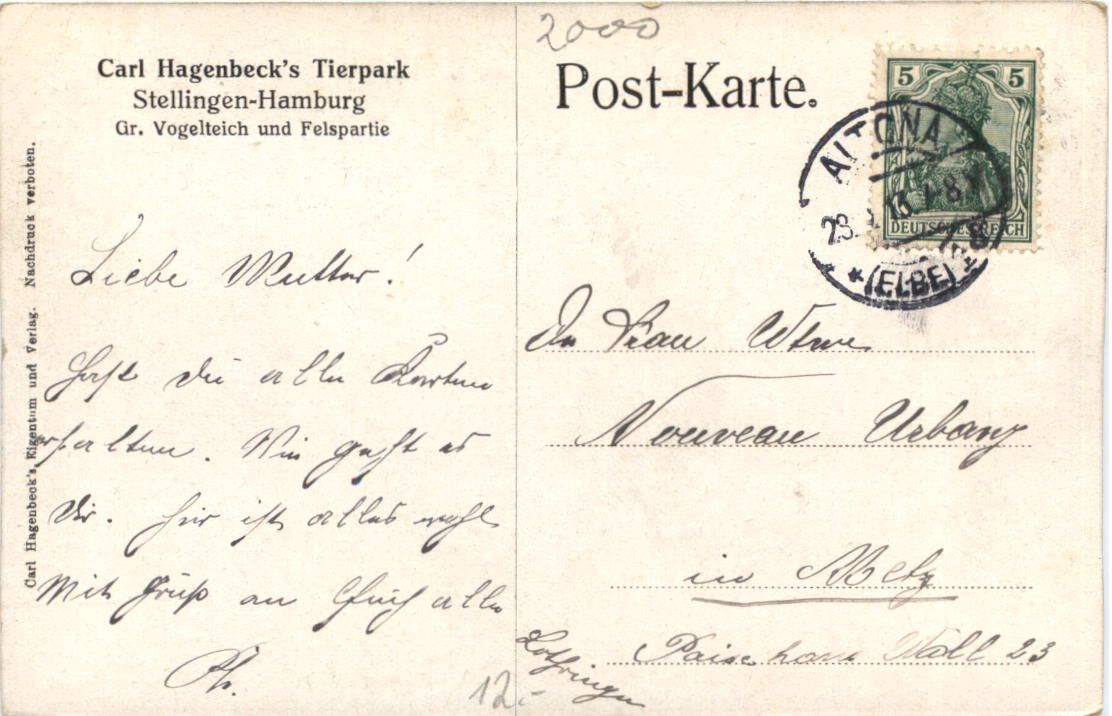 Carl Hagenbeck's Tierpark
Stellingen-Hamburg
Gr. Vogelteich und Felspartie
Carl Hagenbeck's Eigentum und Verlag. Nachdruck verboten.
Liebe Mutter!
Hast du alle Karten
erhalten. Wie geht es
dir. Hier ist alles wohl
Mit Gruß an Euch alle
Ph.
12.-
2000
Post-Karte.
5 5
DEUTSCHES REICH
ALTONA
23. 13. 7-8
* (ELBE) *
An Frau Wtwe
Nouveau Urbany
in Metz
Wall 23
Lothringen